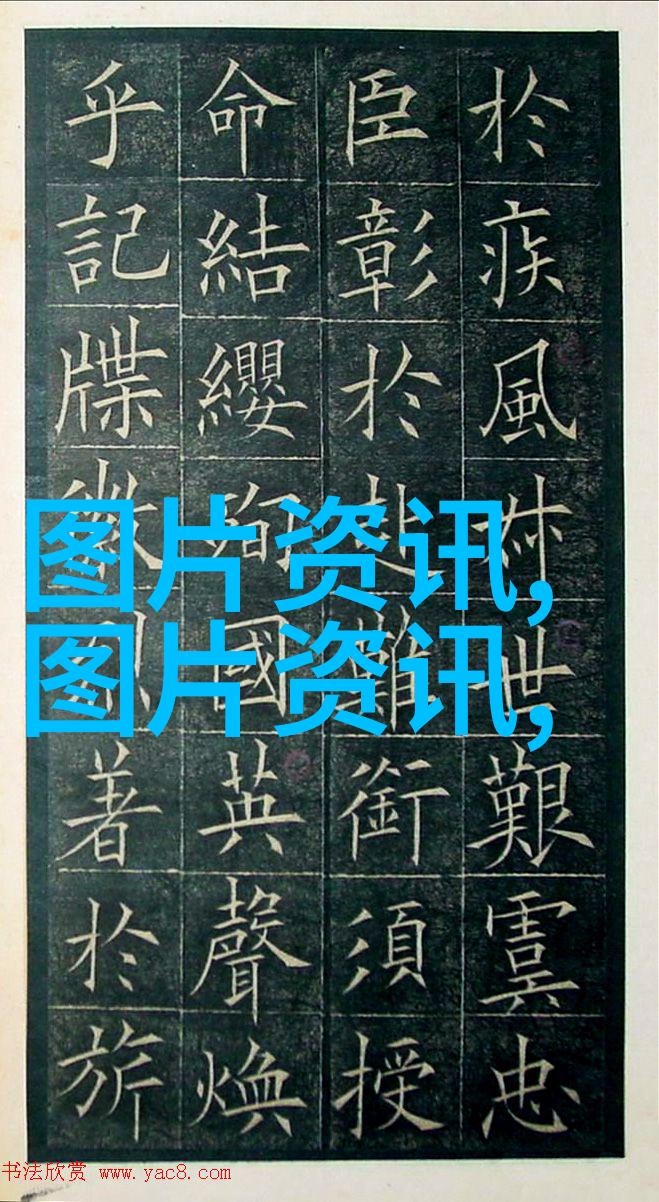 於疾風世艱虞忠
臣彰於赴難銜須授
命結纓殉國英聲煥
乎記牒徽著於旂
图片资讯,
图片资讯,
书法欣赏 www.yac8.com